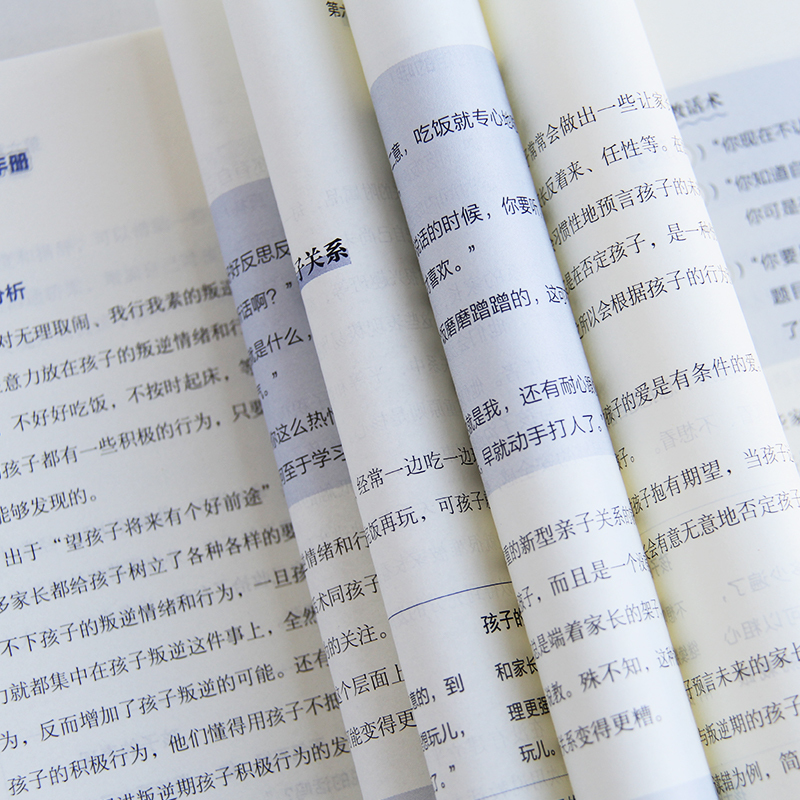 手册
分析
对无理取闹、我行我素的叛逆
注意力放在孩子的叛逆情绪和行
，不好好吃饭，不按时起床，等
的孩子都有一些积极的行为，只要
能够发现的。
出于“望孩子将来有个好前途”
多家长都给孩子树立了各种各样的要
不下孩子的叛逆情绪和行为，一旦孩
力就都集中在孩子叛逆这件事上，全然
为，反而增加了孩子叛逆的可能。还有
孩子的积极行为，他们懂得用孩子不抵
叛逆期孩子积极行为的发
好反思反
话啊？”
是什么，
你这么热情
至于学习
情绪和行
术同孩子
的关注。
个层面上
能变得更
子关系
经常一边吃一边
饭再玩，可孩子
孩子的
意的，到
和家长
玩儿，
理更强
了。”
玩儿。
第六
意，吃饭就专心地
说话的时候，你要听
喜欢。”
磨磨蹭蹭的，这可
是我，还有耐心跟
早就动手打人了。
的新型亲子关系的
孩子，而且是一个
是端着家长的架子
教。殊不知，这
关系变得更糟。
常常会做出一些让家
长反着来、任性等。在
习惯性地预言孩子的未
是在否定孩子，是一种
之所以会根据孩子的行为
孩子的爱是有条件的爱
好。
孩子抱有期望，当孩子
会有意无意地否定孩子
好预言未来的家长
与叛逆期的孩子
错为例，简
教话术
）“你现在不认
）“你知道自
你可是
）“你要
题目
了